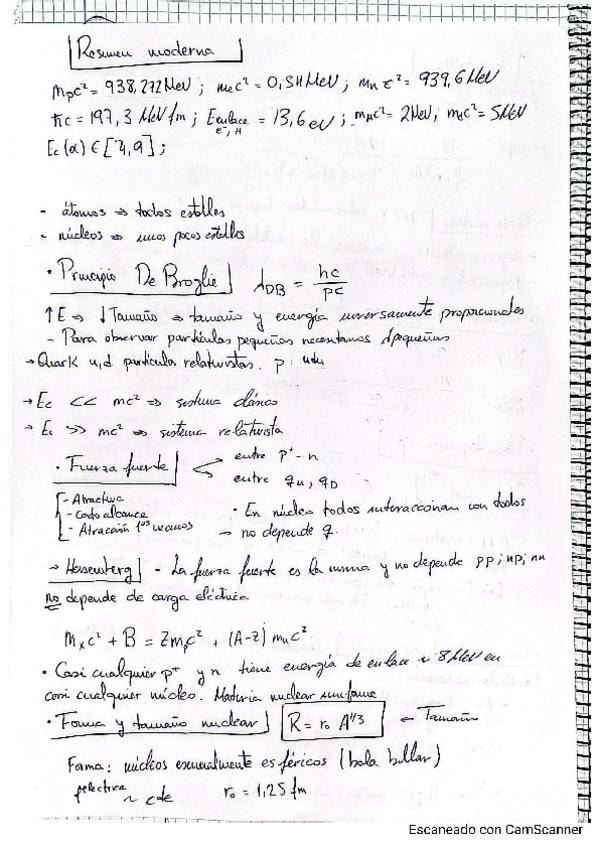 Resumen moderna
mpc² = 938,272 MeV ; mec² = 0,511 MeV ; mn c² = 939,6 MeV
ħc = 197,3 MeV fm ; E enlace e⁻, H = 13,6 eV ; muc² = 2MeV ; mdc² = 5MeV
Ec (α) ∈ [4,9] ;
- átomos ⇒ todos estables
- núcleos ⇒ unos pocos estables
· Principio De Broglie λDB = hc/pc
↑E ⇒ ↓Tamaño ⇒ tamaño y energía inversamente proporcionales
- Para observar partículas pequeñas necesitamos λ pequeñas
→ Quark u,d partícula relativistas. p : uud
→ Ec << mc² ⇒ sistema clásico
→ Ec >> mc² ⇒ sistema relativista
· Fuerza fuerte < entre p⁺ - n
entre qu, qD
- Atractiva
- Corto alcance
- Atracción 1ᵒˢ vecinos
· En núcleo todos interaccionan con todos
→ no depende q.
→ Heisenberg - La fuerza fuerte es la misma y no depende pp ; np ; nn
no depende de carga eléctrica
Mxc² + B = Zmpc² + (A-Z) mnc²
· Casi cualquier p⁺ y n tiene energía de enlace ~ 8 MeV en
casi cualquier núcleo. Materia nuclear uniforme
· Forma y tamaño nuclear R = r₀ A^1/3 ← Tamaño
Forma: núcleos esféricos (bola billar)
ρeléctrica ~ cte r₀ = 1,25 fm
Escaneado con CamScanner